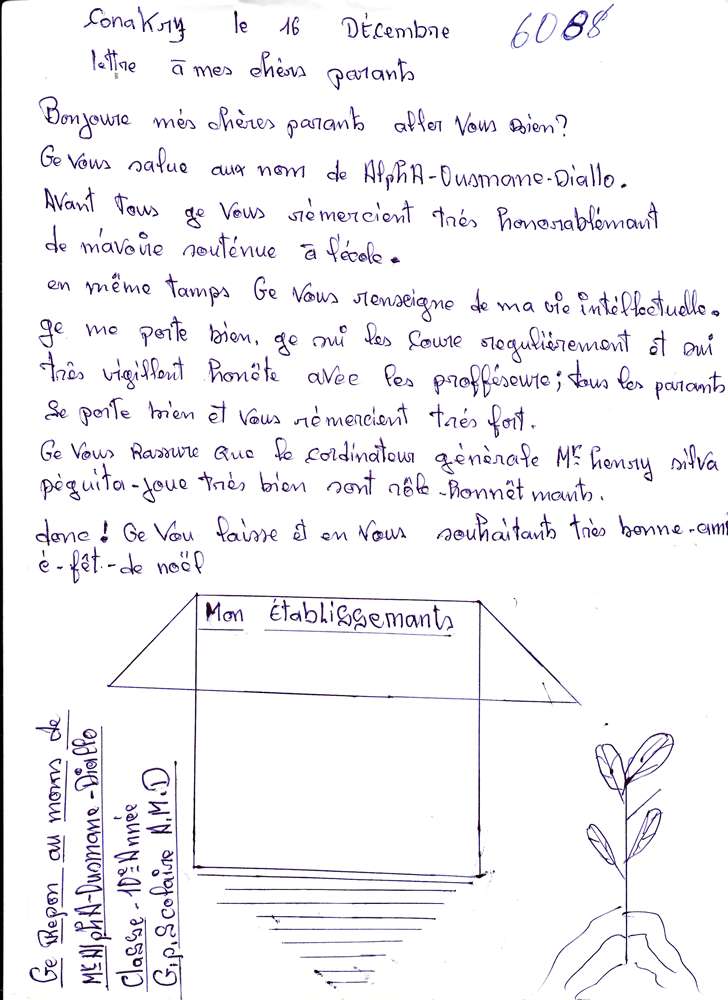 Conakry le 16 Décembre 6088
lettre à mes chèrs parants
Bonjoure més chères parants aller Vous Bien?
Ge Vous salue aux nom de AlphA-Ousmane-Diallo.
Avant Tous ge Vous rémercient trés honorablémant
de m'avoire souténue à l'école.
en même tamps Ge Vous renseigne de ma vie intéllectuelle.
ge me porte bien, ge sui les Coure regulièrement ét sui
très vigillent honête avec les profféseure; tous les parants
se porte bien ét Vous rémercient trés fort.
Ge Vous Rassure que le cordinateur génèrale Mr henry silva
péguita-joue très bien sont rôle-honnêt mants.
donc! Ge Vou laisse ét en Vous souhaitants très bonne-ami
é-fêt-de noël
Mon ÉtabliSSemants
Ge Repon au moms de
Mr AlphA-Ousmane-Diallo
Classe-10e Année
G.p.Scolaire A.M.D